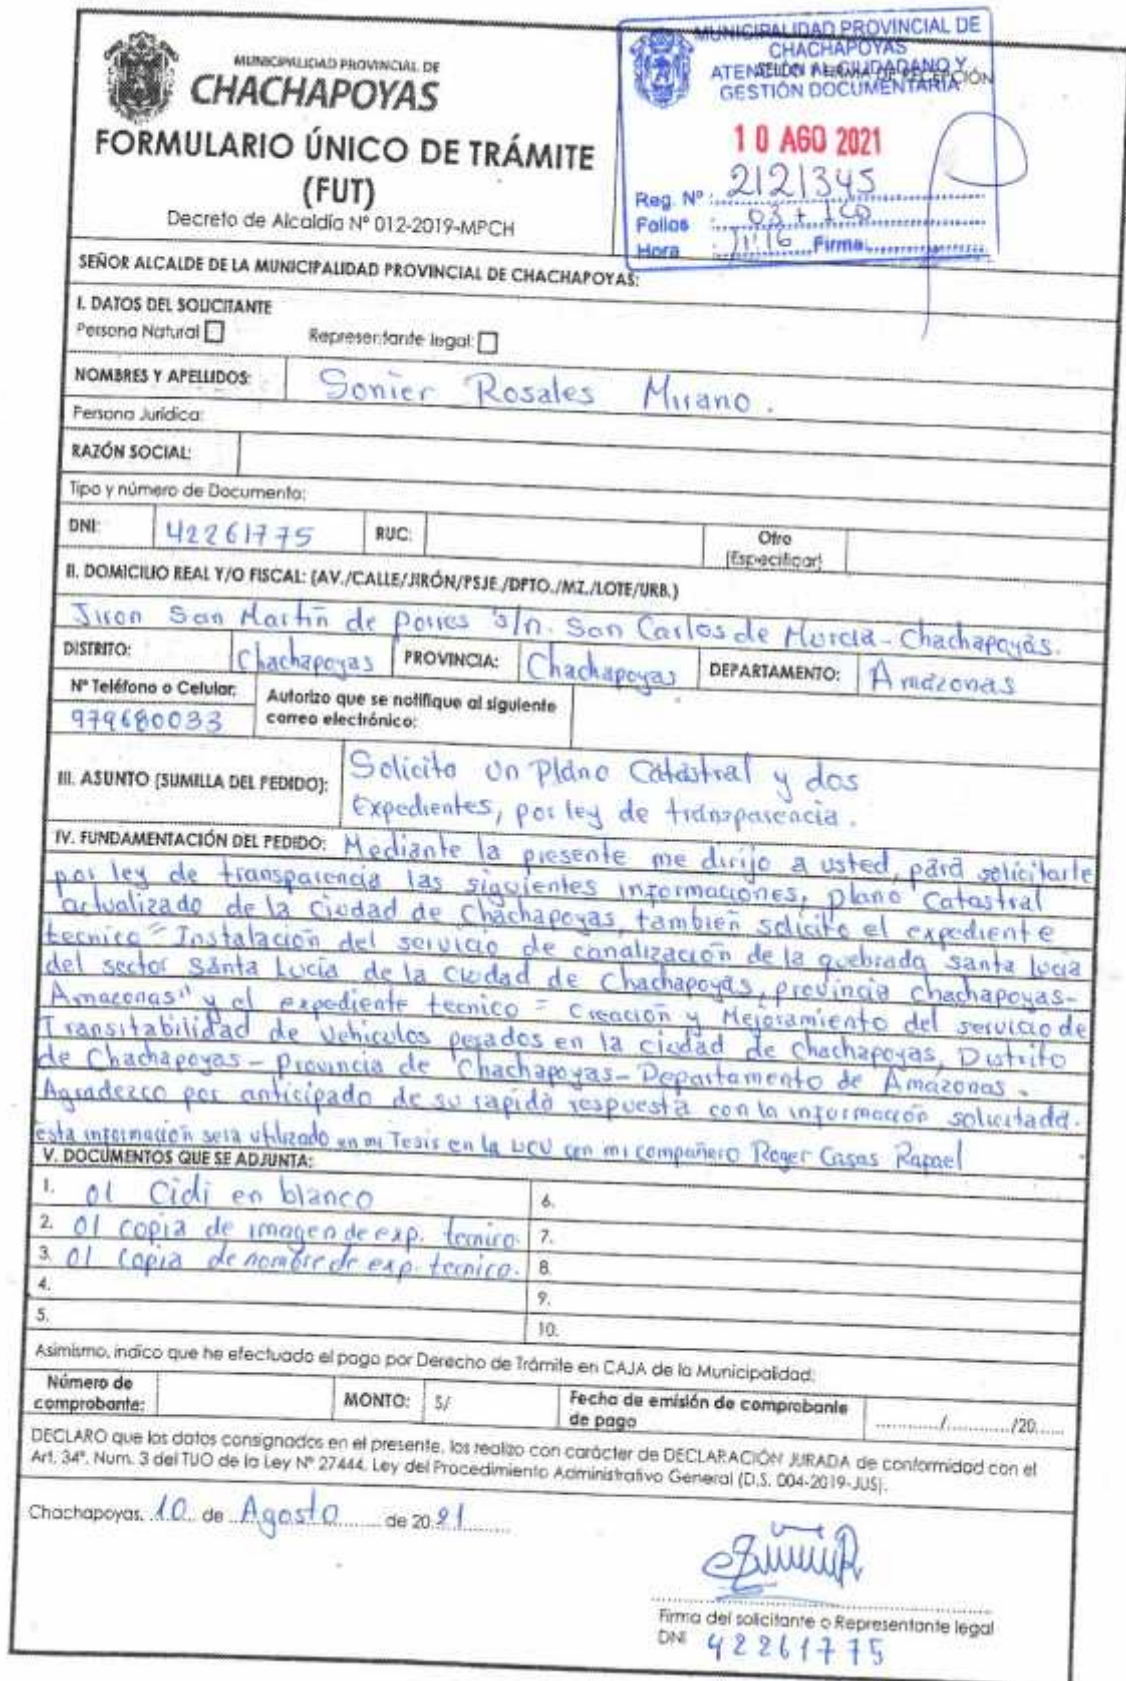 MUNICIPALIDAD PROVINCIAL DE
CHACHAPOYAS
FORMULARIO ÚNICO DE TRÁMITE
(FUT)
Decreto de Alcaldía Nº 012-2019-MPCH
MUNICIPALIDAD PROVINCIAL DE
CHACHAPOYAS
ATENCIÓN AL CIUDADANO Y
GESTIÓN DOCUMENTARIA
FIRMA DE RECEPCIÓN
10 AGO 2021
Reg. Nº 2121345
Folios : 03 + 1CD
Hora : 11:16 Firma
SEÑOR ALCALDE DE LA MUNICIPALIDAD PROVINCIAL DE CHACHAPOYAS:
I. DATOS DEL SOLICITANTE
Persona Natural Representante legal:
NOMBRES Y APELLIDOS: Sonier Rosales Mirano.
Persona Jurídica:
RAZÓN SOCIAL:
Tipo y número de Documento:
DNI: 42261775 RUC: Otro
(Especificar)
II. DOMICILIO REAL Y/O FISCAL: (AV./CALLE/JIRÓN/PSJE./DPTO./MZ./LOTE/URB.)
Jiron San Martin de Porres s/n. San Carlos de Murcia - Chachapoyas.
DISTRITO: Chachapoyas PROVINCIA: Chachapoyas DEPARTAMENTO: Amazonas
Nº Teléfono o Celular: Autorizo que se notifique al siguiente
979680033 correo electrónico:
III. ASUNTO (SUMILLA DEL PEDIDO): Solicito un Plano Catastral y dos
Expedientes, por ley de transparencia.
IV. FUNDAMENTACIÓN DEL PEDIDO: Mediante la presente me dirijo a usted, para solicitarle
por ley de transparencia las siguientes informaciones, plano Catastral
actualizado de la Ciudad de Chachapoyas, también solicito el expediente
tecnico "Instalación del servicio de canalización de la quebrada santa lucia
del sector Santa Lucia de la Ciudad de Chachapoyas, provincia chachapoyas-
Amazonas" y el expediente tecnico = Creación y Mejoramiento del servicio de
Transitabilidad de Vehiculos pesados en la ciudad de Chachapoyas, Distrito
de Chachapoyas - Provincia de Chachapoyas - Departamento de Amazonas.
Agradezco por anticipado de su rapida respuesta con la información solicitada.
esta información sera utilizado en mi Tesis en la UCV con mi compañero Roger Casas Rafael
V. DOCUMENTOS QUE SE ADJUNTA:
1. 01 Cidi en blanco 6.
2. 01 copia de imagen de exp. tecnico. 7.
3. 01 copia de nombre de exp. tecnico. 8.
4. 9.
5. 10.
Asimismo, indico que he efectuado el pago por Derecho de Trámite en CAJA de la Municipalidad:
Número de
comprobante: MONTO: S/ Fecha de emisión de comprobante
de pago ............/............/20......
DECLARO que los datos consignados en el presente, los realizo con carácter de DECLARACIÓN JURADA de conformidad con el
Art. 34º. Num. 3 del TUO de la Ley Nº 27444, Ley del Procedimiento Administrativo General (D.S. 004-2019-JUS).
Chachapoyas, 10 de Agosto de 2021
Firma del solicitante o Representante legal
DNI 42261775